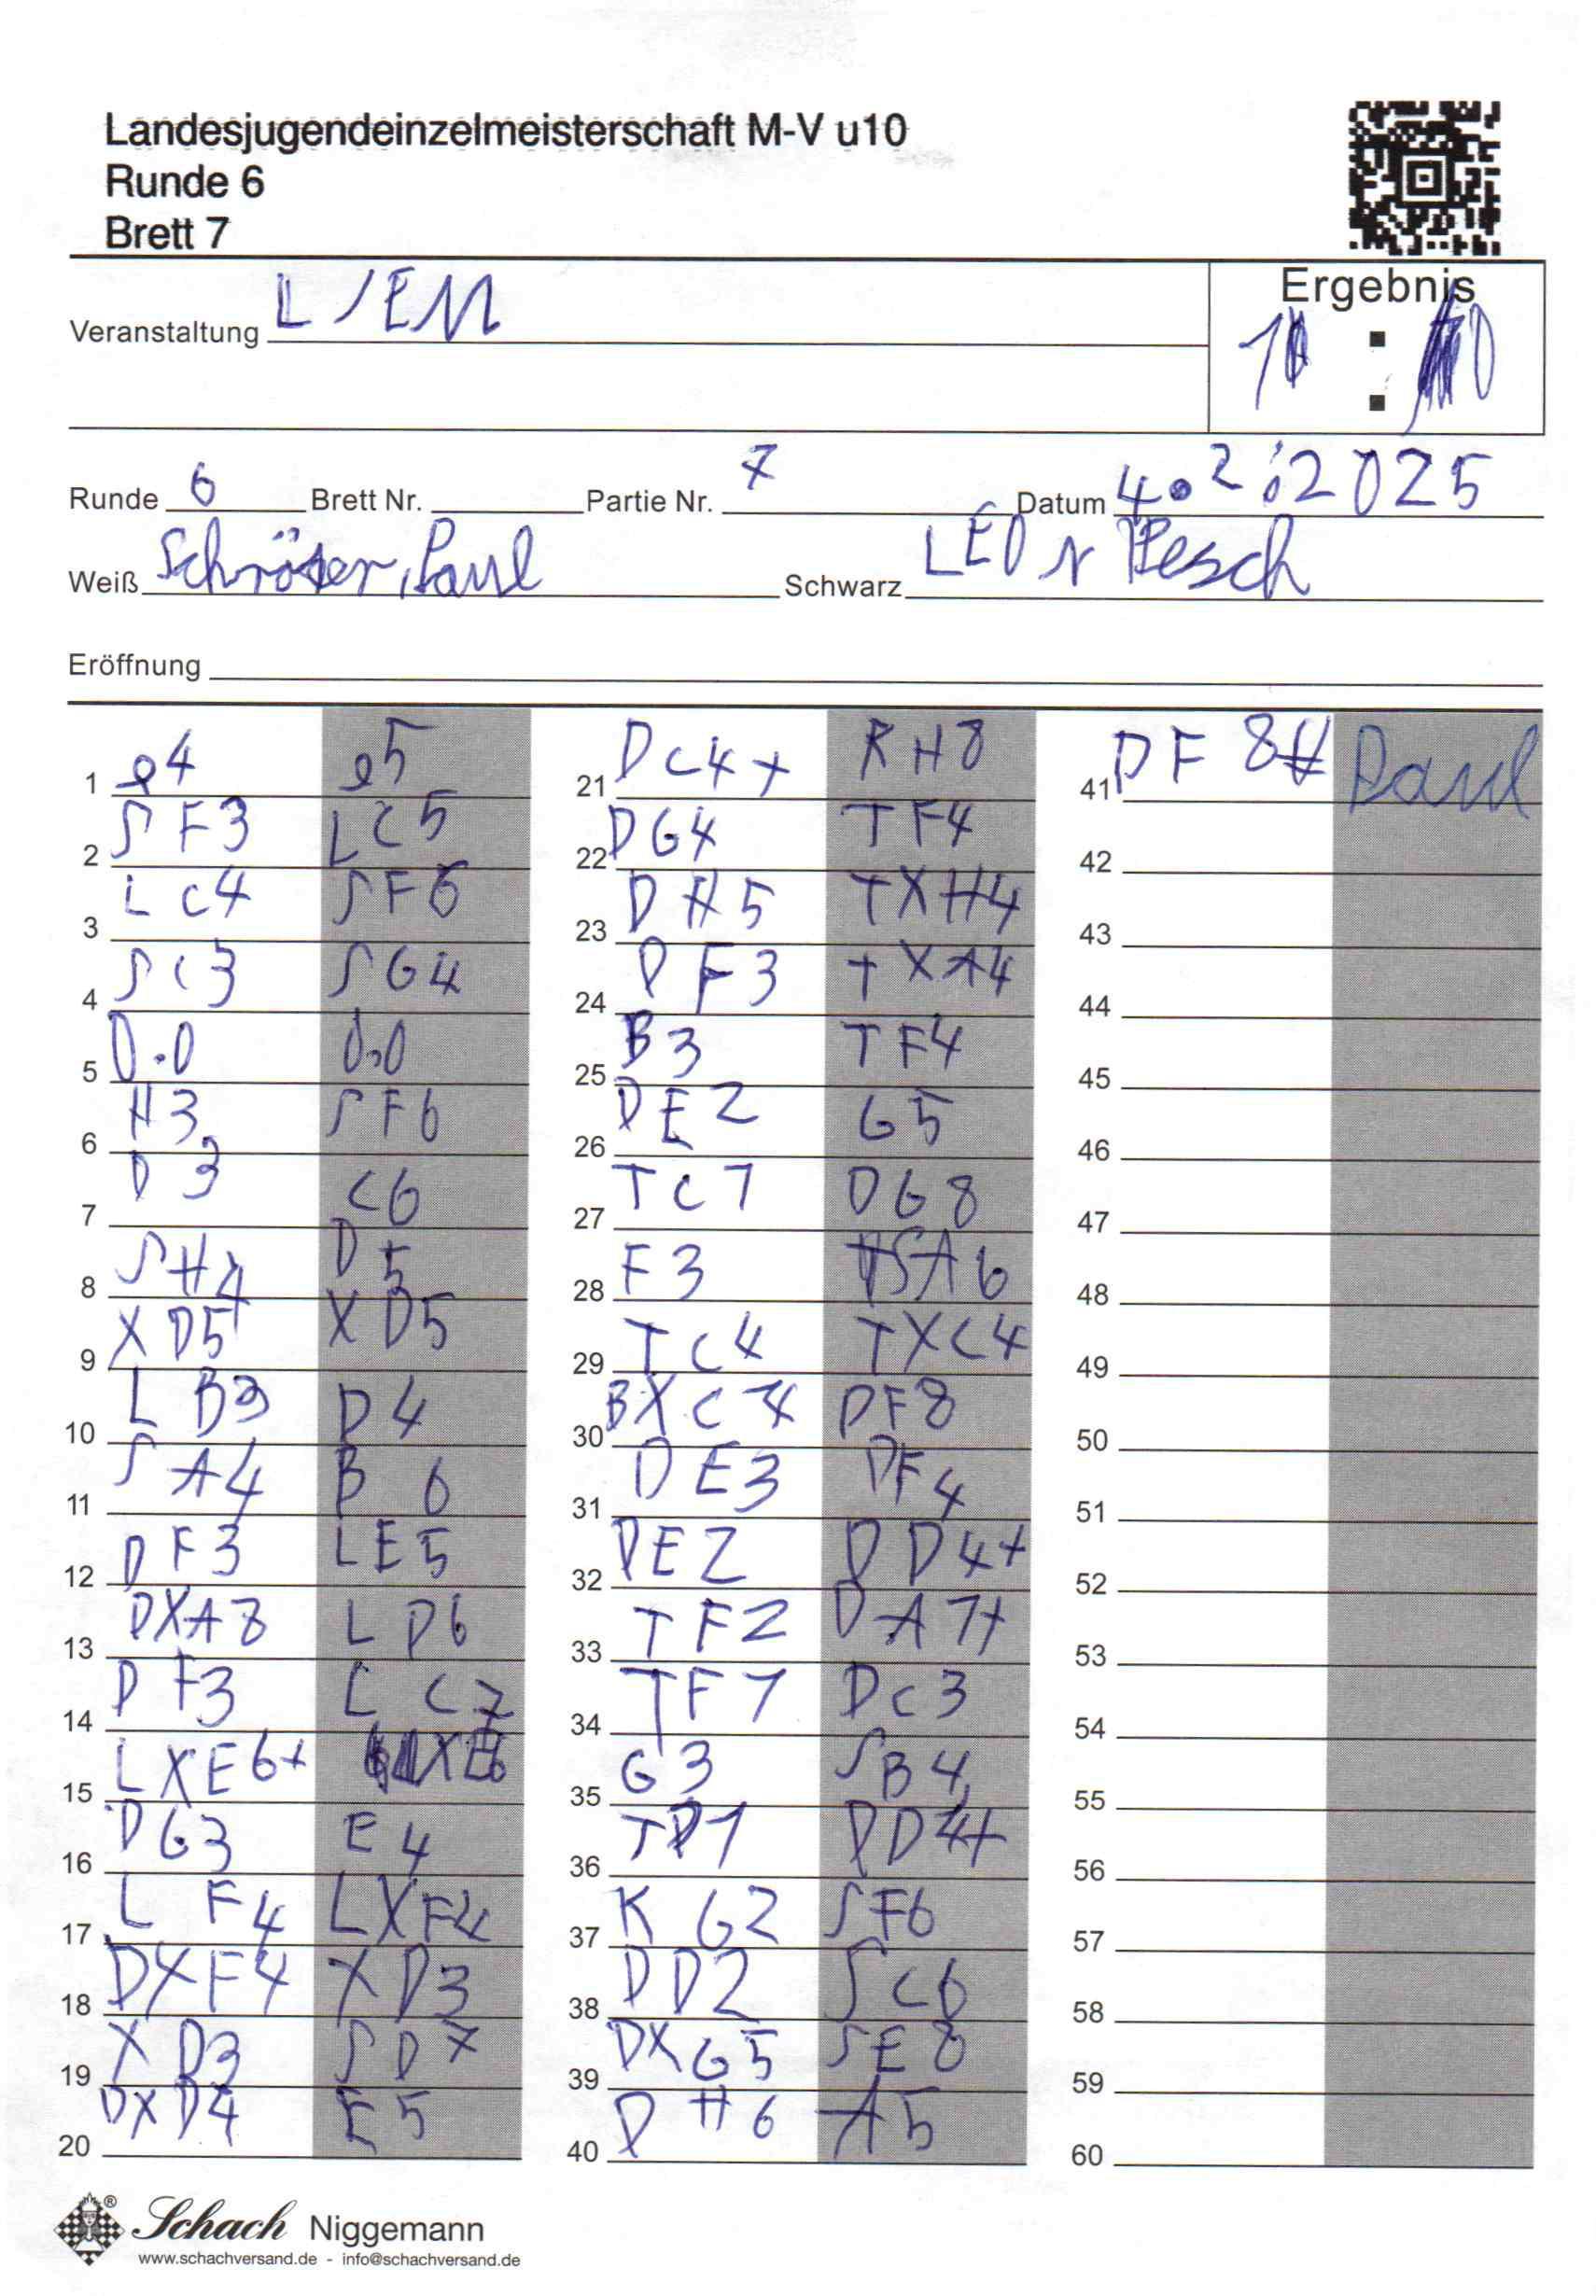 Landesjugendeinzelmeisterschaft M-V u10
Runde 6
Brett 7
Ergebnis
Veranstaltung LJEM
1 : 0
Runde 6 Brett Nr. Partie Nr. 7 Datum 4.2.2025
Weiß Schröter, Paul Schwarz LEON Pesch
Eröffnung
1 e4 e5
2 SF3 LC5
3 LC4 SF6
4 SC3 SG4
5 0.0 0.0
6 H3 SF6
7 D3 C6
8 SH4 D5
9 XD5 XD5
10 LB3 D4
11 SA4 B6
12 DF3 LE5
13 DXA8 LD6
14 DF3 LC7
15 LXE6+ XE6
16 DG3 E4
17 LF4 LXF4
18 DXF4 XD3
19 XD3 SD7
20 DXD4 E5
21 DC4+ KH8
22 DG4 TF4
23 DH5 TXH4
24 DF3 TXA4
25 B3 TF4
26 DE2 G5
27 TC7 DG8
28 F3 SA6
29 TC4 TXC4
30 BXC4 DF8
31 DE3 DF4
32 DE2 DD4+
33 TF2 DA1+
34 TF1 DC3
35 G3 SB4
36 TD1 DD4+
37 KG2 SF6
38 DD2 SC6
39 DXG5 SE8
40 DH6 A5
41 DF8# Paul
42
43
44
45
46
47
48
49
50
51
52
53
54
55
56
57
58
59
60
Schach Niggemann
www.schachversand.de - info@schachversand.de